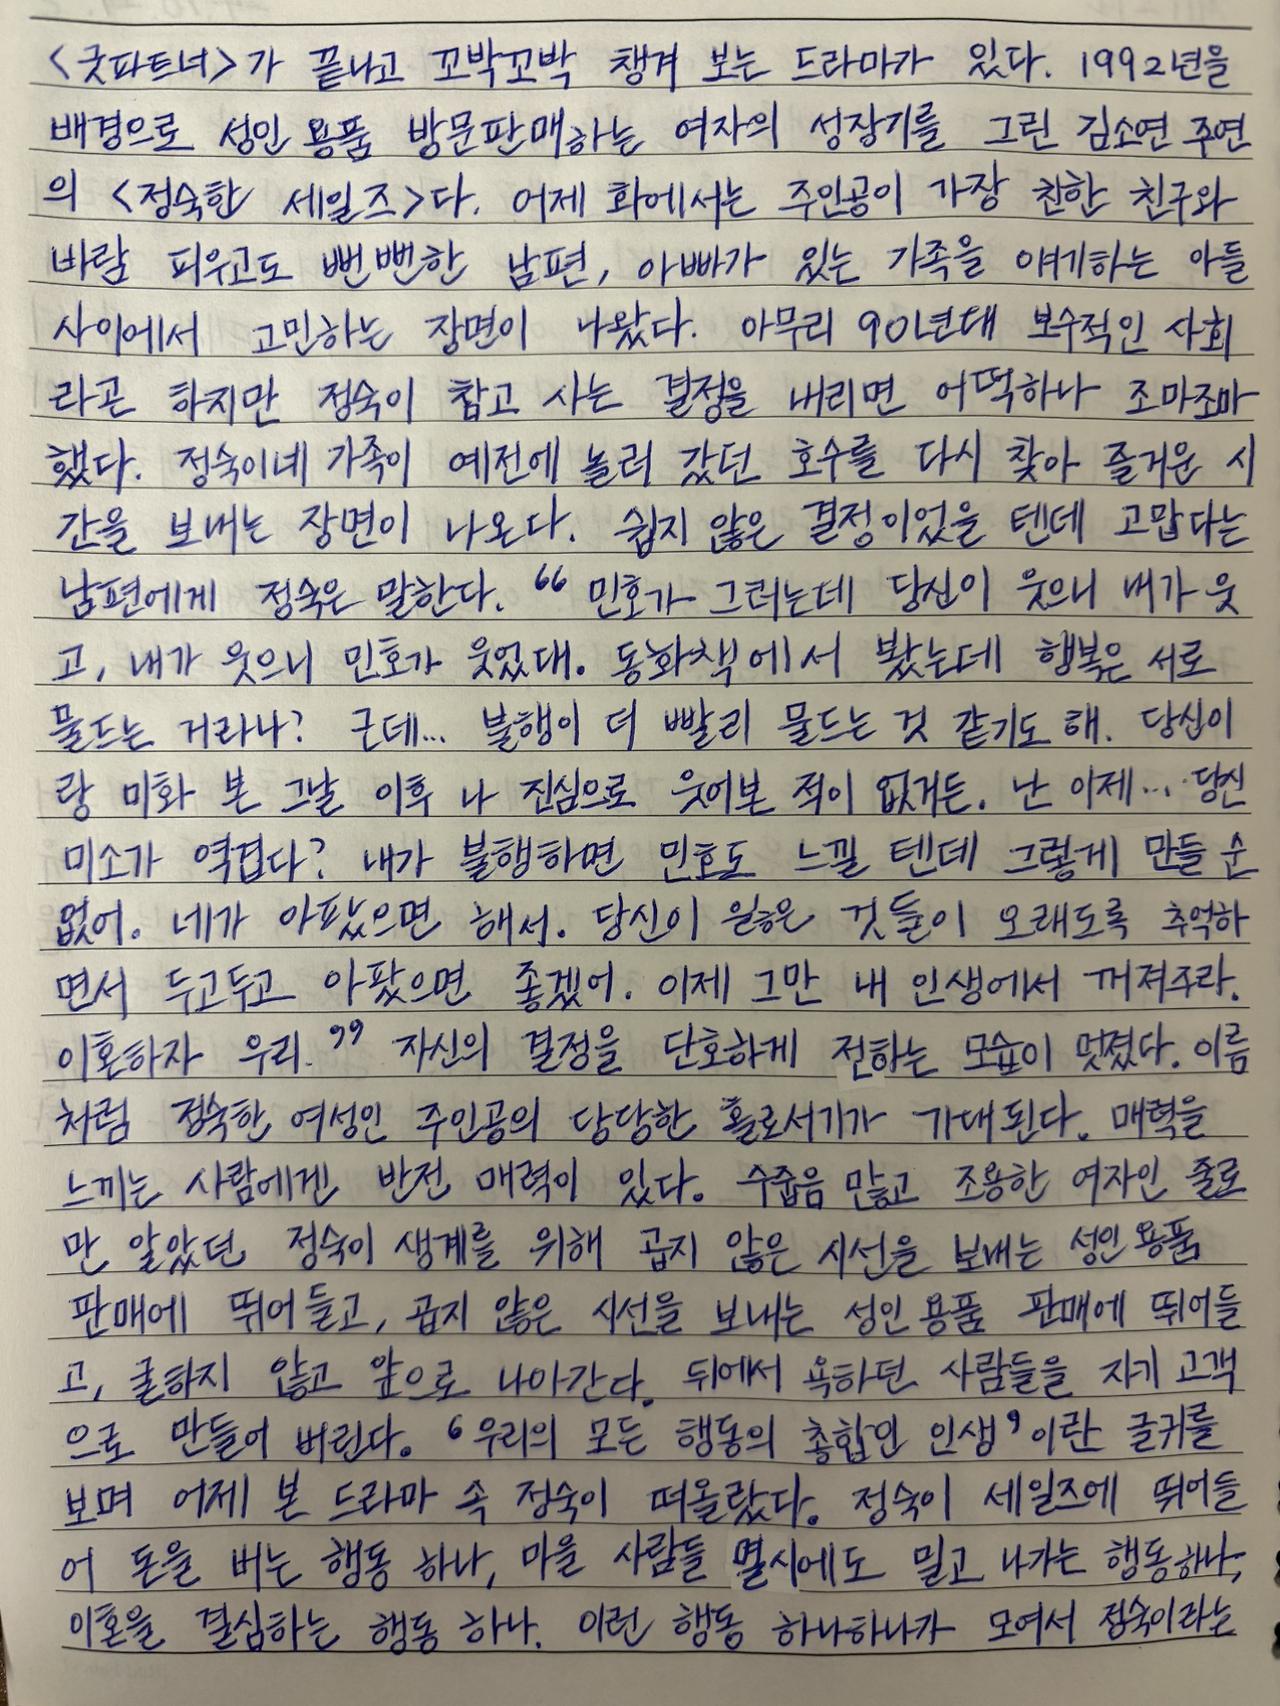 <굿파트너>가 끝나고 꼬박꼬박 챙겨 보는 드라마가 있다. 1992년을
배경으로 성인용품 방문판매하는 여자의 성장기를 그린 김소연 주연
의 <정숙한 세일즈>다. 어제 화에서는 주인공이 가장 친한 친구와
바람 피우고도 뻔뻔한 남편, 아빠가 있는 가족을 얘기하는 아들
사이에서 고민하는 장면이 나왔다. 아무리 90년대 보수적인 사회
라곤 하지만 정숙이 참고 사는 결정을 내리면 어떡하나 조마조마
했다. 정숙이네 가족이 예전에 놀러 갔던 호수를 다시 찾아 즐거운 시
간을 보내는 장면이 나온다. 쉽지 않은 결정이었을 텐데 고맙다는
남편에게 정숙은 말한다. “민호가 그러는데 당신이 웃으니 내가 웃
고, 내가 웃으니 민호가 웃었대. 동화책에서 봤는데 행복은 서로
물드는 거라나? 근데... 불행이 더 빨리 물드는 것 같기도 해. 당신이
랑 미화 본 그날 이후 나 진심으로 웃어본 적이 없거든. 난 이제... 당신
미소가 역겹다? 내가 불행하면 민호도 느낄 텐데 그렇게 만들 순
없어. 네가 아팠으면 해서. 당신이 잃은 것들이 오래도록 추억하
면서 두고두고 아팠으면 좋겠어. 이제 그만 내 인생에서 꺼져주라.
이혼하자 우리.” 자신의 결정을 단호하게 전하는 모습이 멋졌다. 이름
처럼 정숙한 여성인 주인공의 당당한 홀로서기가 기대된다. 매력을
느끼는 사람에겐 반전 매력이 있다. 수줍음 많고 조용한 여자인 줄로
만 알았던 정숙이 생계를 위해 곱지 않은 시선을 보내는 성인용품
판매에 뛰어들고, 곱지 않은 시선을 보내는 성인용품 판매에 뛰어들
고, 굴하지 않고 앞으로 나아간다. 뒤에서 욕하던 사람들을 자기 고객
으로 만들어 버린다. ‘우리의 모든 행동의 총합인 인생’이란 글귀를
보며 어제 본 드라마 속 정숙이 떠올랐다. 정숙이 세일즈에 뛰어들
어 돈을 버는 행동 하나, 마을 사람들 멸시에도 밀고 나가는 행동 하나,
이혼을 결심하는 행동 하나. 이런 행동 하나하나가 모여서 정숙이라는